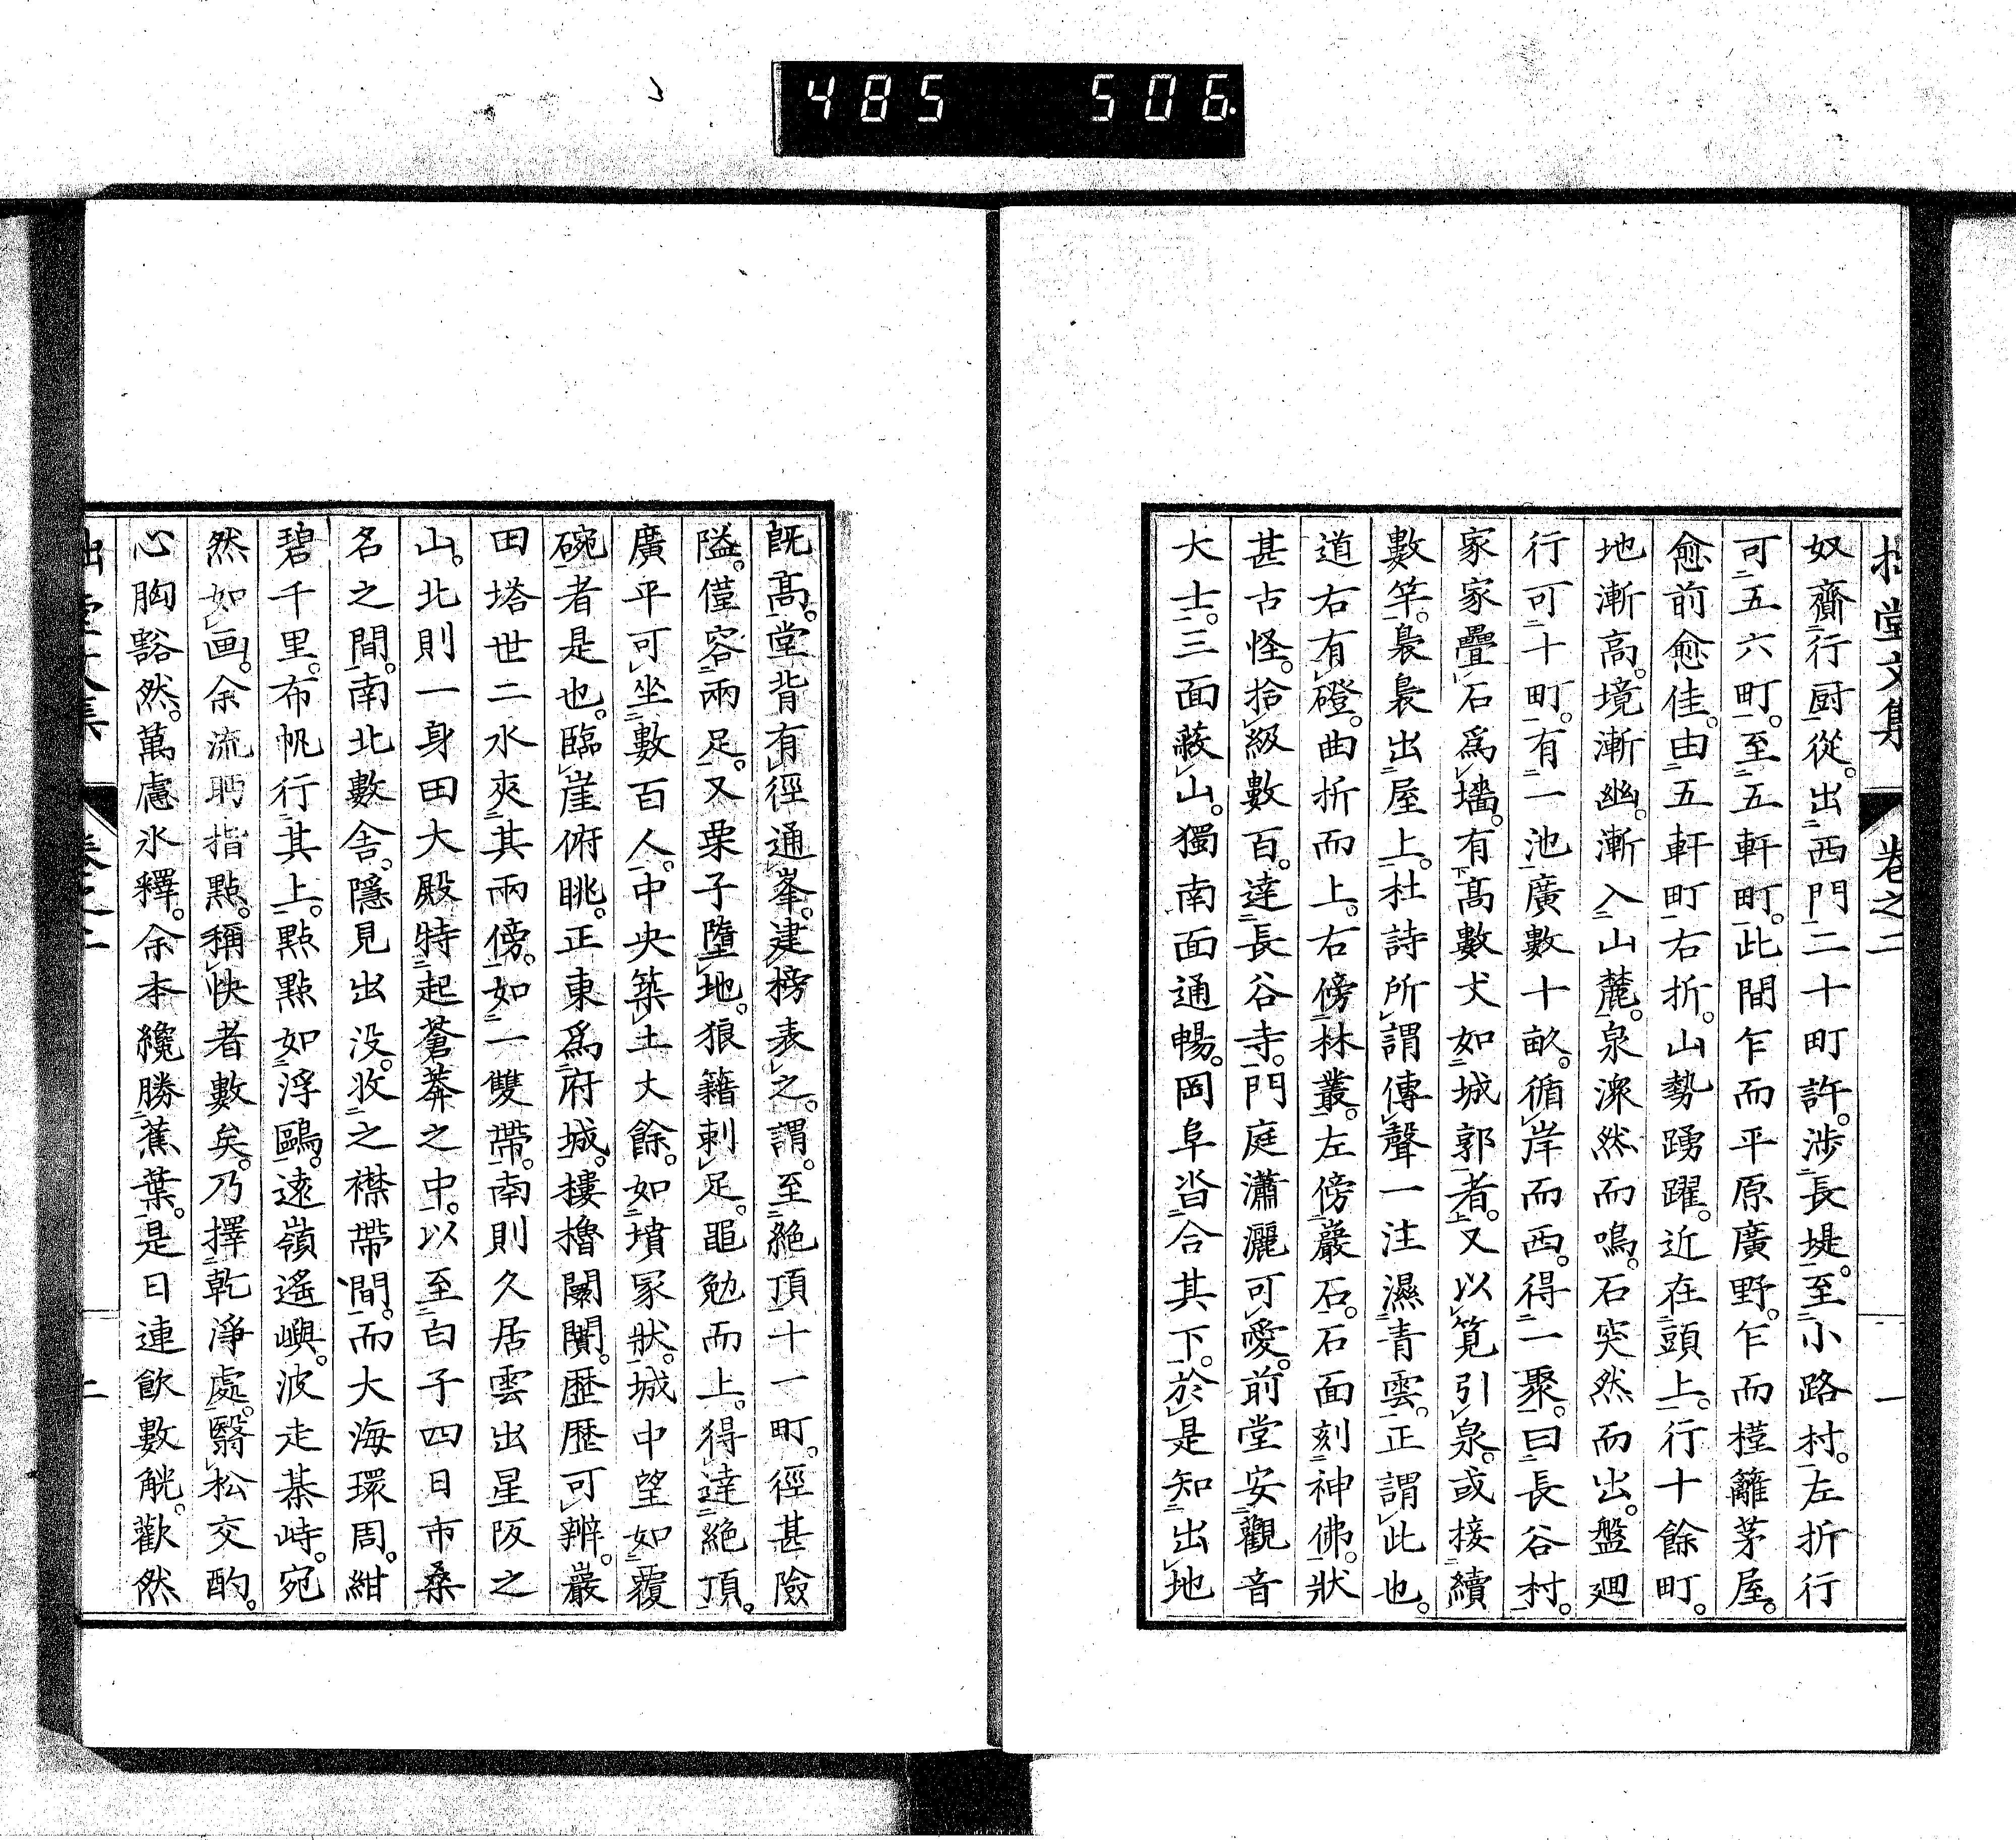 485 506.
拙堂文集 卷之二 一
奴齎行厨從。出西門二十町許。渉長堤。至小路村。左折行
可五六町。至五軒町。此間乍而平原廣野。乍而槿籬茅屋。
愈前愈佳。由五軒町右折。山勢踴躍。近在頭上。行十餘町。
地漸高。境漸幽。漸入山麓。泉潨然而鳴。石突然而出。盤廻
行可十町。有一池廣數十畝。循岸而西。得一聚。曰長谷村。
家家疊石爲墻。有高數丈如城郭者。又以筧引泉。或接續
數竿。裊裊出屋上。杜詩所謂傳聲一注濕青雲。正謂此也。
道右有磴。曲折而上。右傍林叢。左傍巖石。石面刻神佛。狀
甚古怪。拾級數百。達長谷寺。門庭瀟灑可愛。前堂安觀音
大士。三面蔽山。獨南面通暢。岡阜沓合其下。於是知出地
既高。堂背有徑通峯。建榜表之。謂。至絶頂十一町。徑甚險
隘。僅容兩足。又栗子墮地。狼籍刺足。黽勉而上。得達絶頂。
廣平可坐數百人。中央築土丈餘。如墳冢狀。城中望如覆
碗者是也。臨崖俯眺。正東爲府城。樓櫓闤闠。歴歴可辨。巖
田塔世二水夾其兩傍。如一雙帶。南則久居雲出星阪之
山。北則一身田大殿特起蒼莽之中。以至白子四日市桑
名之間。南北數舍。隱見出没。收之襟帶間。而大海環周。紺
碧千里。布帆行其上。點點如浮鷗。遠嶺遙嶼。波走棊峙。宛
然如画。余流眄指點。稱快者數矣。乃擇乾淨處。翳松交酌。
心胸豁然。萬慮氷釋。余本纔勝蕉葉。是日連飮數觥。歡然
拙堂文集 卷之二 二